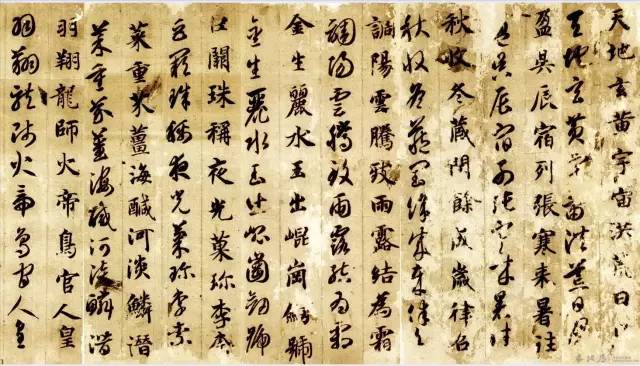 天地玄黄宇宙洪荒日
天地玄黄宇宙洪荒日月
盈昃辰宿列張寒来暑往
盈昃辰宿列張寒来暑往
秋收冬藏閏餘成歲律召
秋收冬藏閏餘成歲律召
調陽雲騰致雨露結為霜
調陽雲騰致雨露結為霜
金生麗水玉出崐崗劒號
金生麗水玉出崐崗劒號
巨闕珠稱夜光菓珎李柰
巨闕珠稱夜光菓珎李柰
菜重芥薑海鹹河淡鱗潛
菜重芥薑海鹹河淡鱗潛
羽翔龍師火帝鳥官人皇
羽翔龍師火帝鳥官人皇